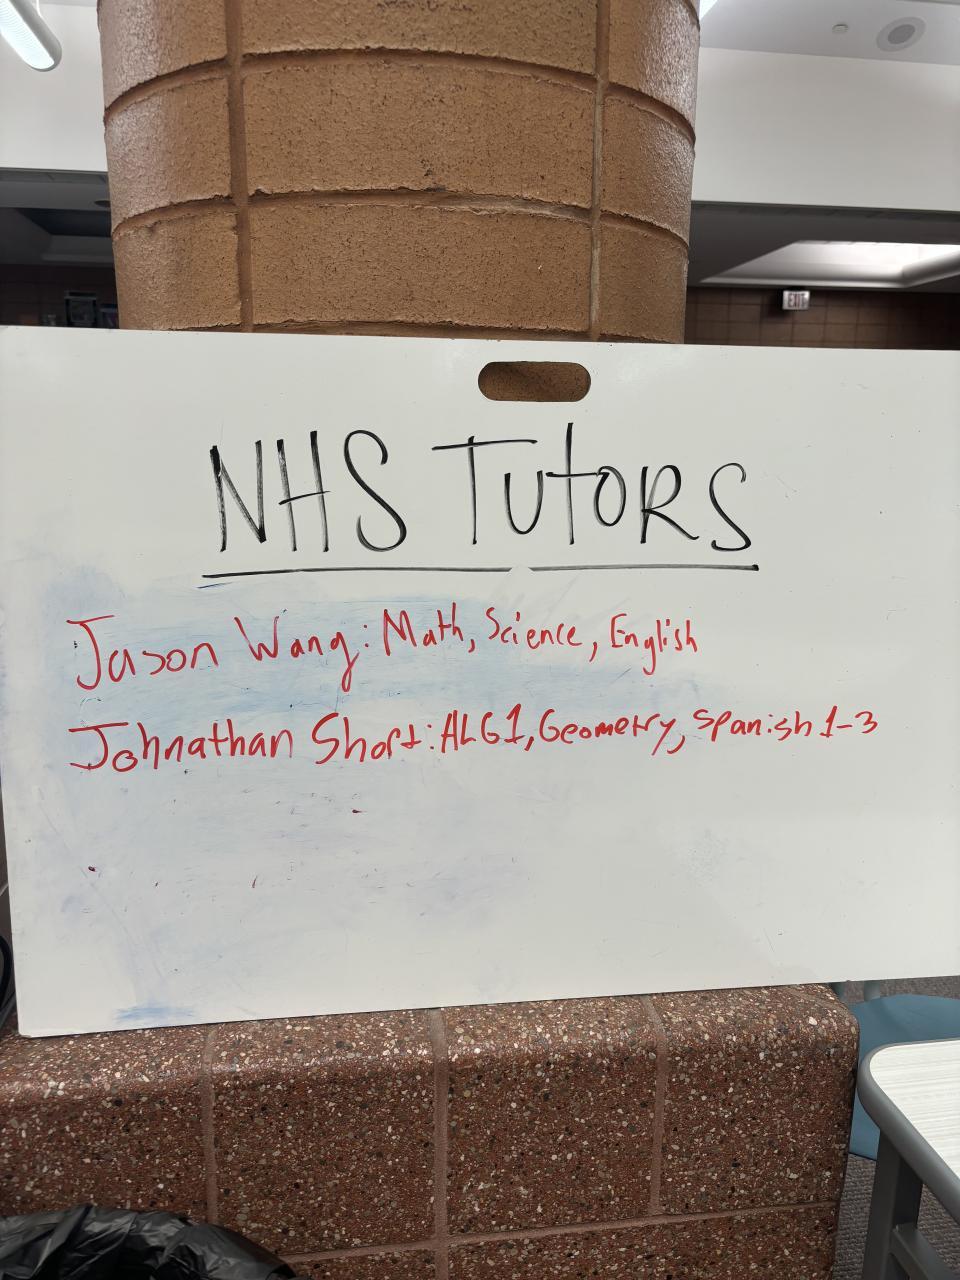 EXIT
NHS TutoRS
Jason Wang: Math, Science, English
Johnathan Short: ALG1, Geometry, Spanish 1-3